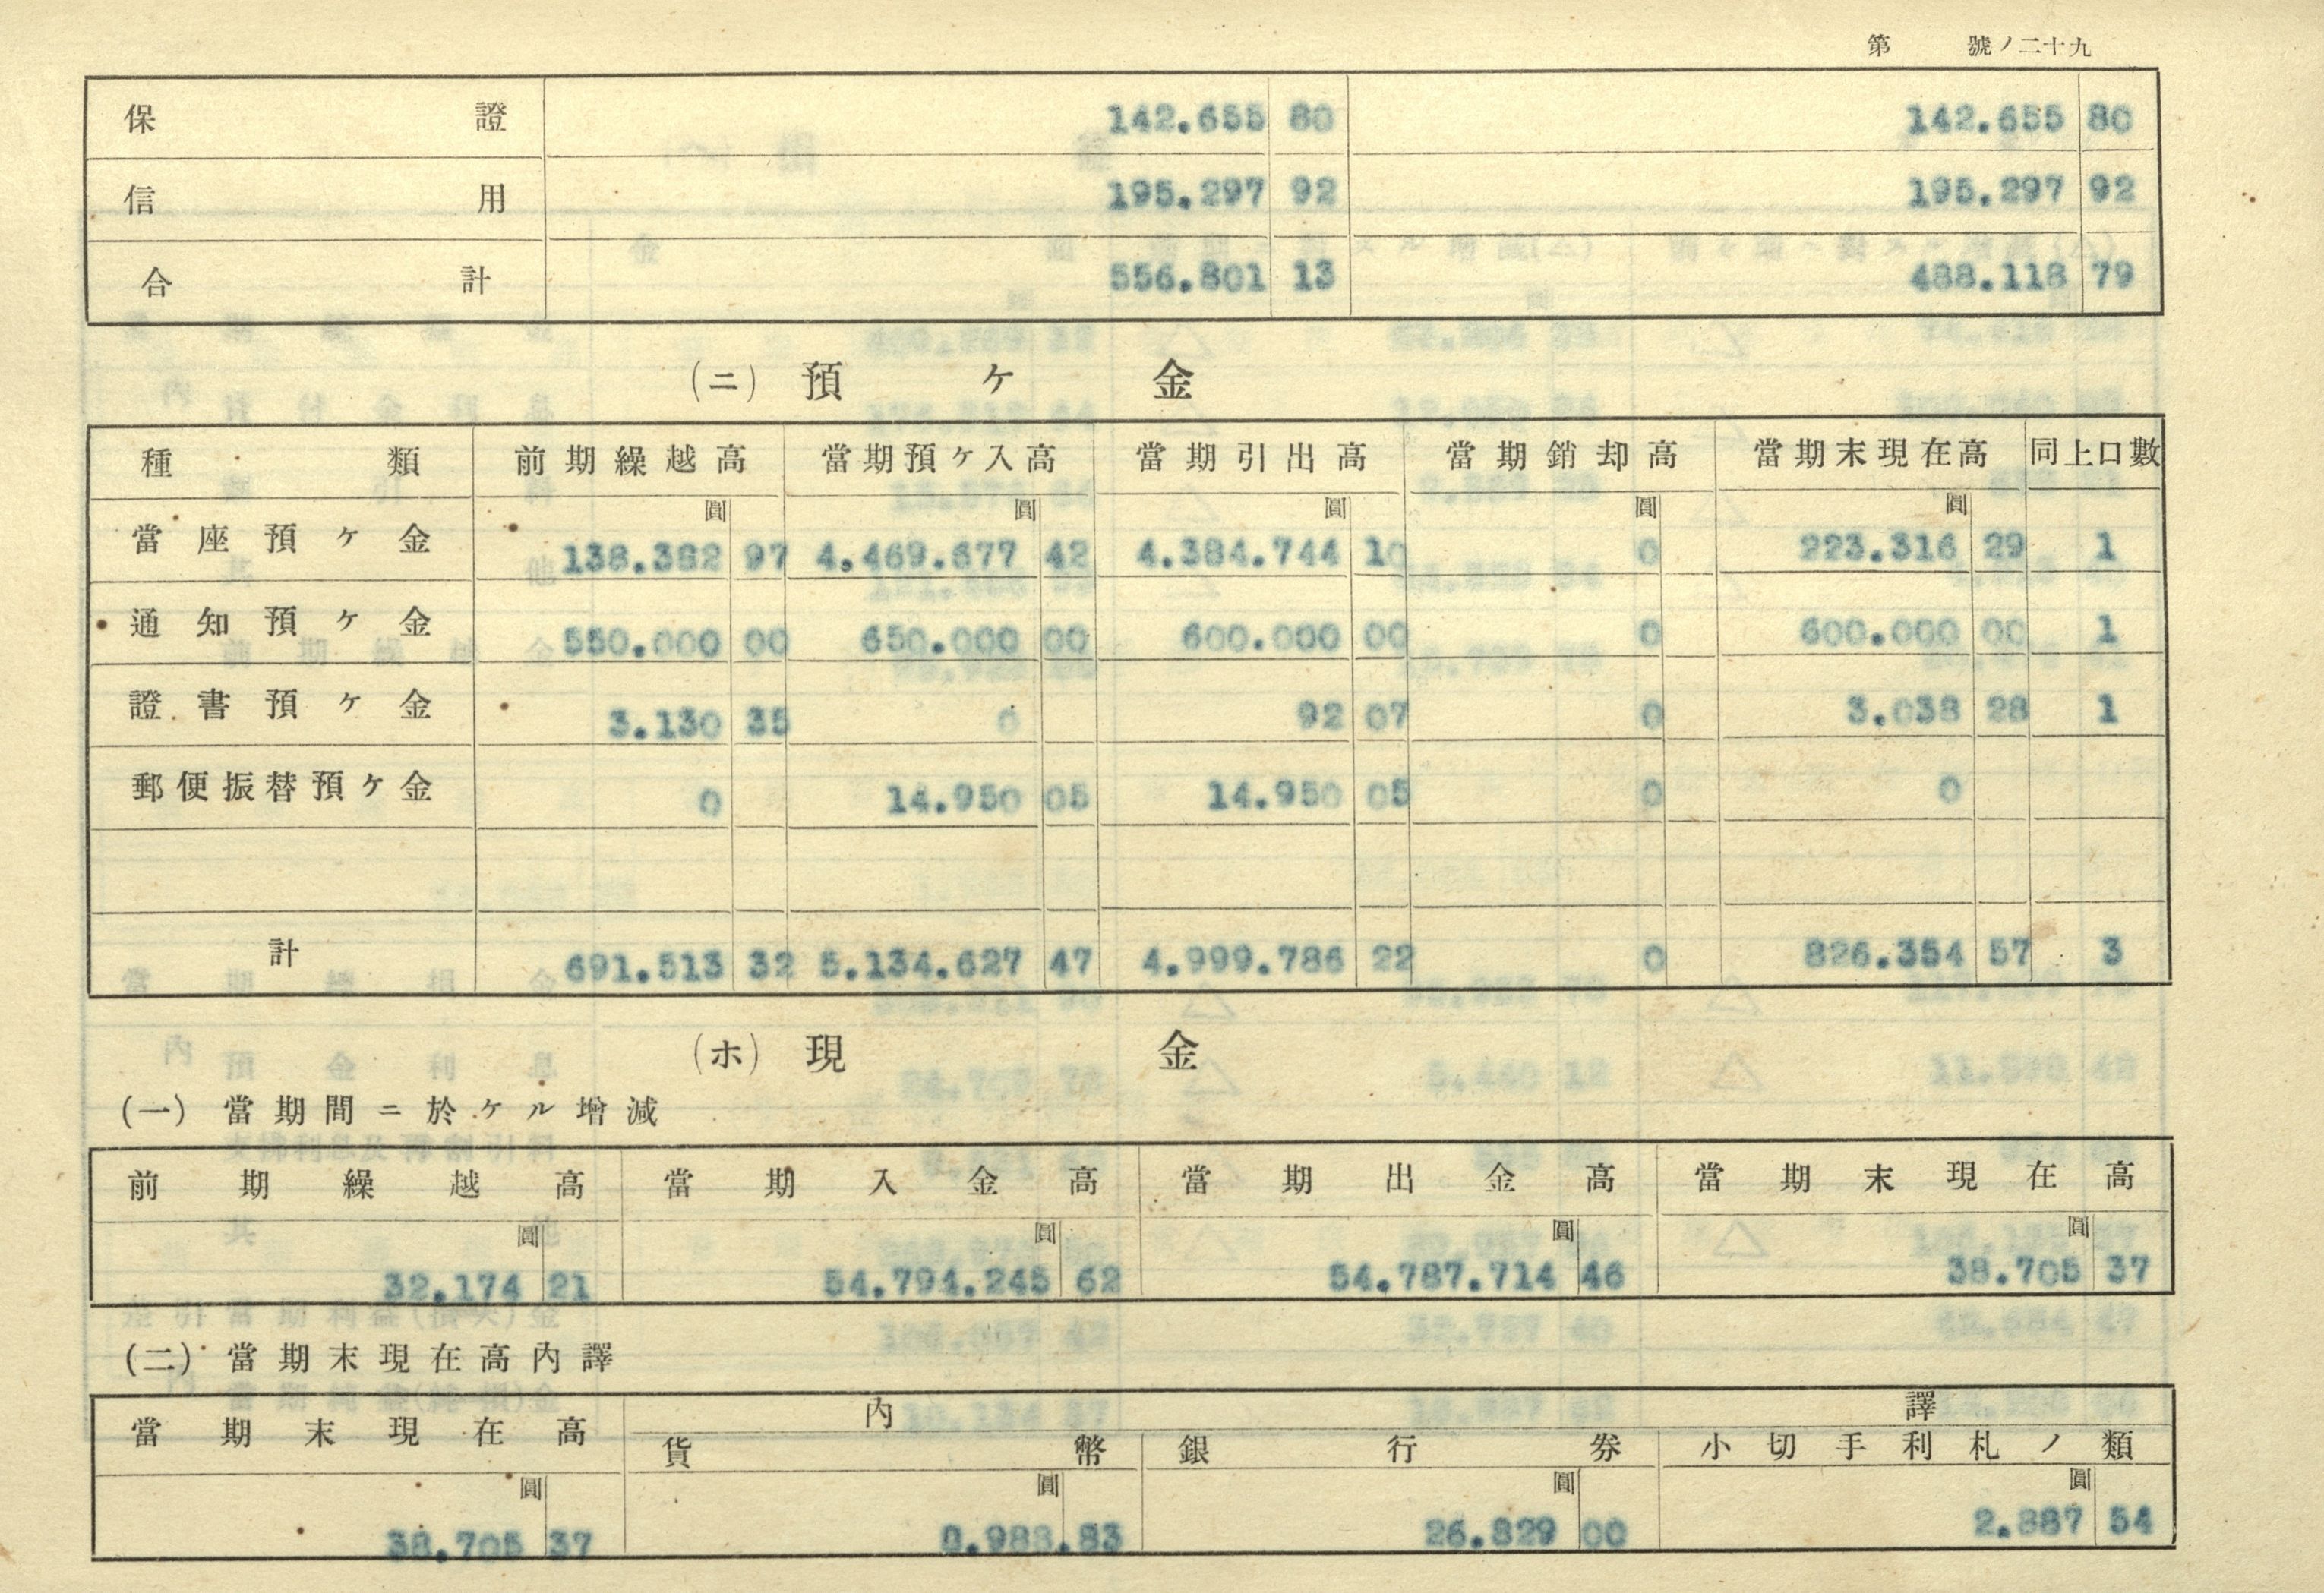 第 號ノ二十九
保證 142.655 80 142.655 80
信用 195.297 92 195.297 92
合計 556.801 13 488.118 79
(ニ) 預ケ金
種類 前期繰越高 當期預ケ入高 當期引出高 當期銷却高 當期末現在高 同上口數
圓 圓 圓 圓 圓
當座預ケ金 138.382 97 4.469.677 42 4.384.744 10 0 223.316 29 1
通知預ケ金 550.000 00 650.000 00 600.000 00 0 600.000 00 1
證書預ケ金 3.130 35 0 92 07 0 3.038 28 1
郵便振替預ケ金 0 14.950 05 14.950 05 0 0
計 691.513 32 5.134.627 47 4.999.786 22 0 826.354 57 3
(ホ) 現金
(一) 當期間ニ於ケル增減
前期繰越高 當期入金高 當期出金高 當期末現在高
圓 圓 圓 圓
32.174 21 54.794.245 62 54.787.714 46 38.705 37
(二) 當期末現在高內譯
當期末現在高 內譯
貨幣 銀行券 小切手利札ノ類
圓 圓 圓 圓
38.705 37 .988.83 26.829 00 2.887 54